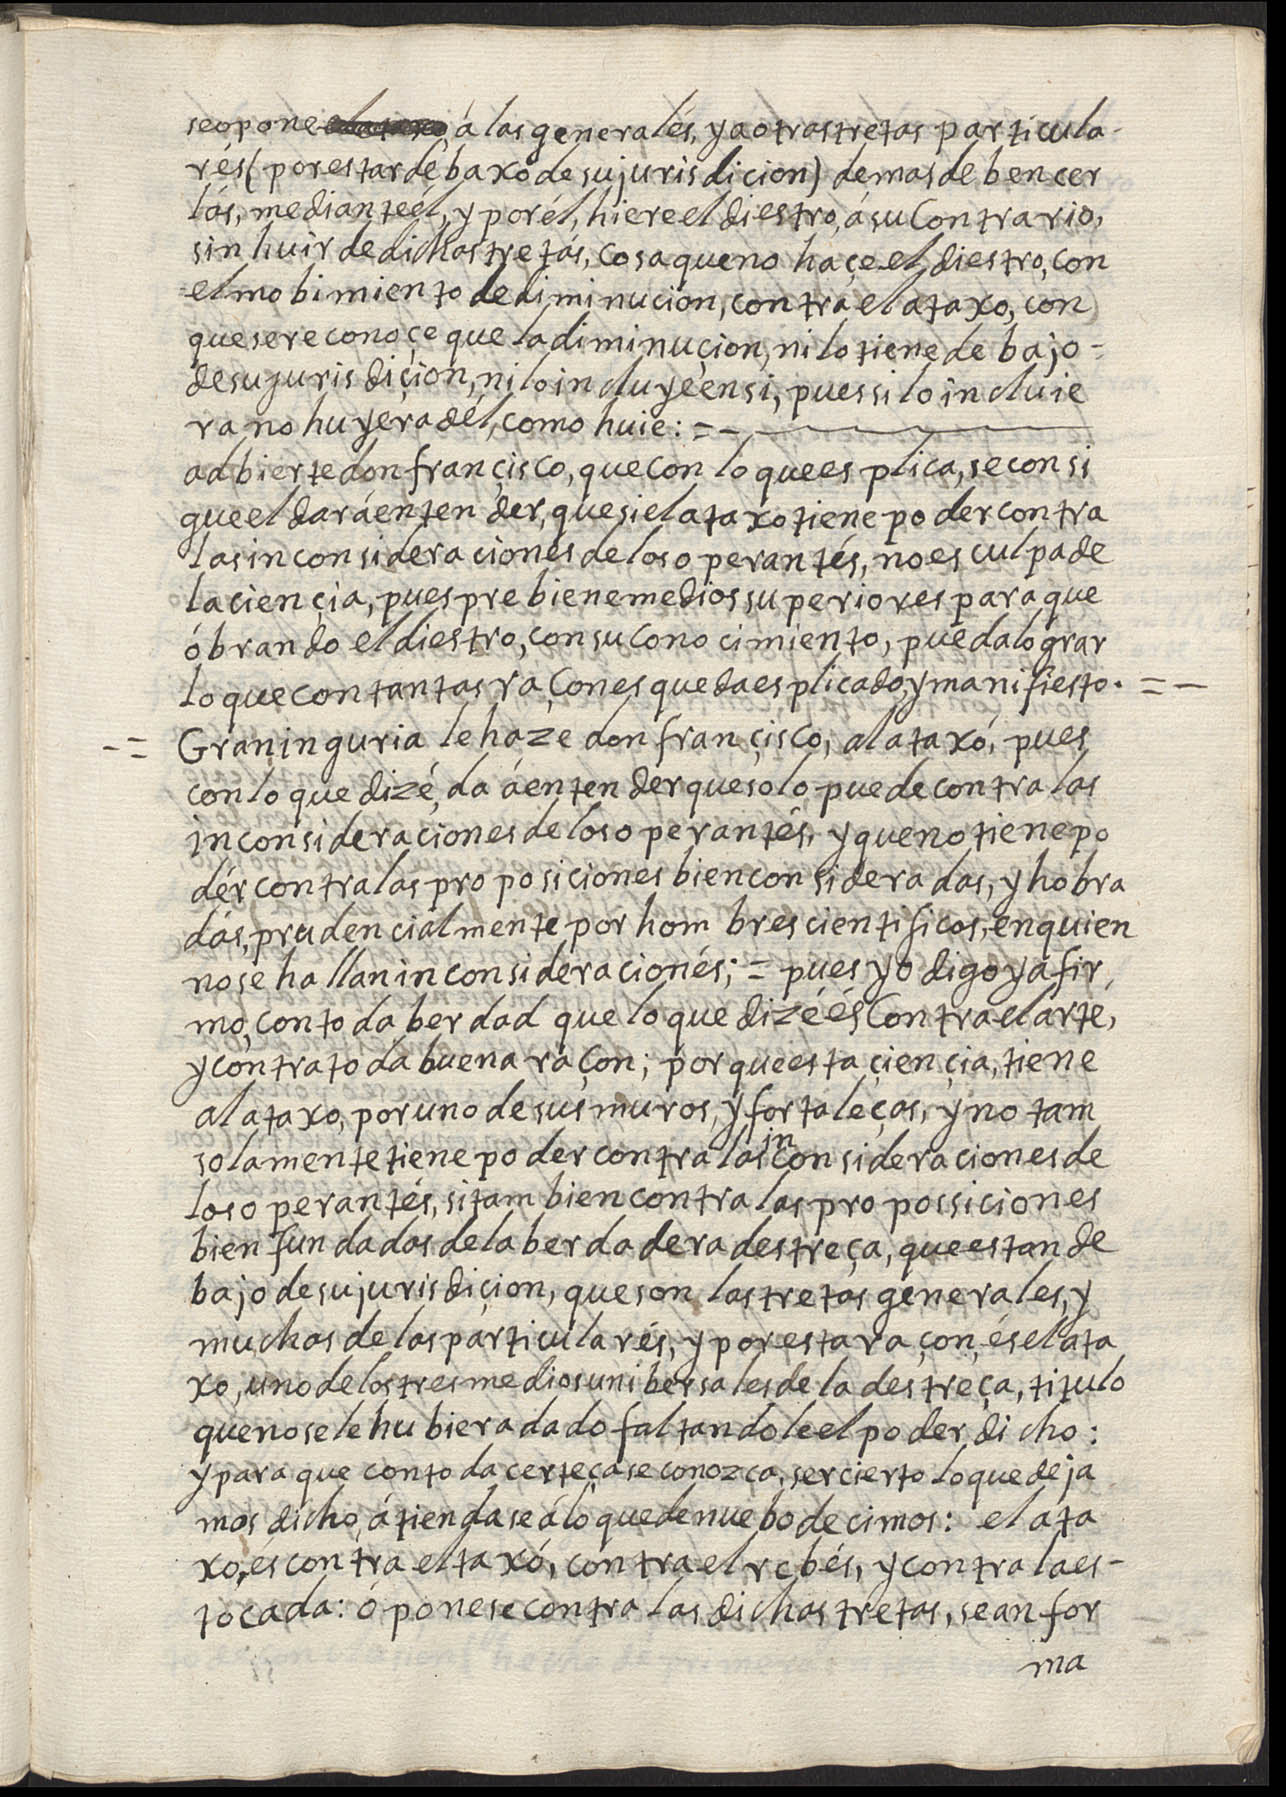 se opone á las generalés, y a otras tretas particula-
rés (por estar débaxo de su jurisdicion) demas de bencer
lás, mediante él, y por él, hiere el diestro, á su Contrario,
sin huir de dichas tretas, Cosa que no haçe el diestro, con
el mobimiento de diminucion, contra el ataxo, con
que se reconoçe que la diminuçion, ni lo tiene de bajo =
de su jurisdiçion, ni lo incluye en si, pues si lo incluie
ra no huyera dél, como huie: = -
adbierte don françisco, que con lo que es plica, se consi
gue el dar á entender, que si el ataxo tiene poder contra
las inconsideracionés de los operantés, no es culpa de
la ciençia, pues prebiene medios superiores para que
óbrando el diestro, con su conocimiento, pueda lograr
lo que con tantas raçones queda esplicado, y manifiesto. = -
- = Gran inguria le haze don françisco, al ataxó, pues
con lo que dizé, da á entender que solo puede contra las
inconsideraciones de los operantés, y que no tiene po
dér contra las proposiciones bien consideradas, y hobra
dás, prudencialmente por hombres cientificos, en quien
no se hallan inconsideracionés; = pues yo digo y áfir
mo, con toda berdad que lo que dizé és Contra el arte,
y contra toda buena raçon; porque esta çiençia, tiene
al ataxo, por uno de sus muros, y fortaleças, y no tam
solamente tiene poder contra las inconsideraciones de
los operantés, si tambien contra las propossiciones
bien fundadas de la berdadera destreça, que estan de
bajo de su jurisdiçion, que son las tretas generales, y
muchas de las particularés, y por esta raçon, és el ata
xo, uno de los tres medios unibersales de la destreça, titulo
que no se le hubiera dado faltandole el poder dicho:
y para que con toda certeça se conozca, ser cierto lo que deja
mos dicho, átiendase á lo que de nuebo decimos: el ata
xo, és contra el taxó, contra el rebés, y contra la es-
tocada: óponese contra las dichas tretas, sean for
ma